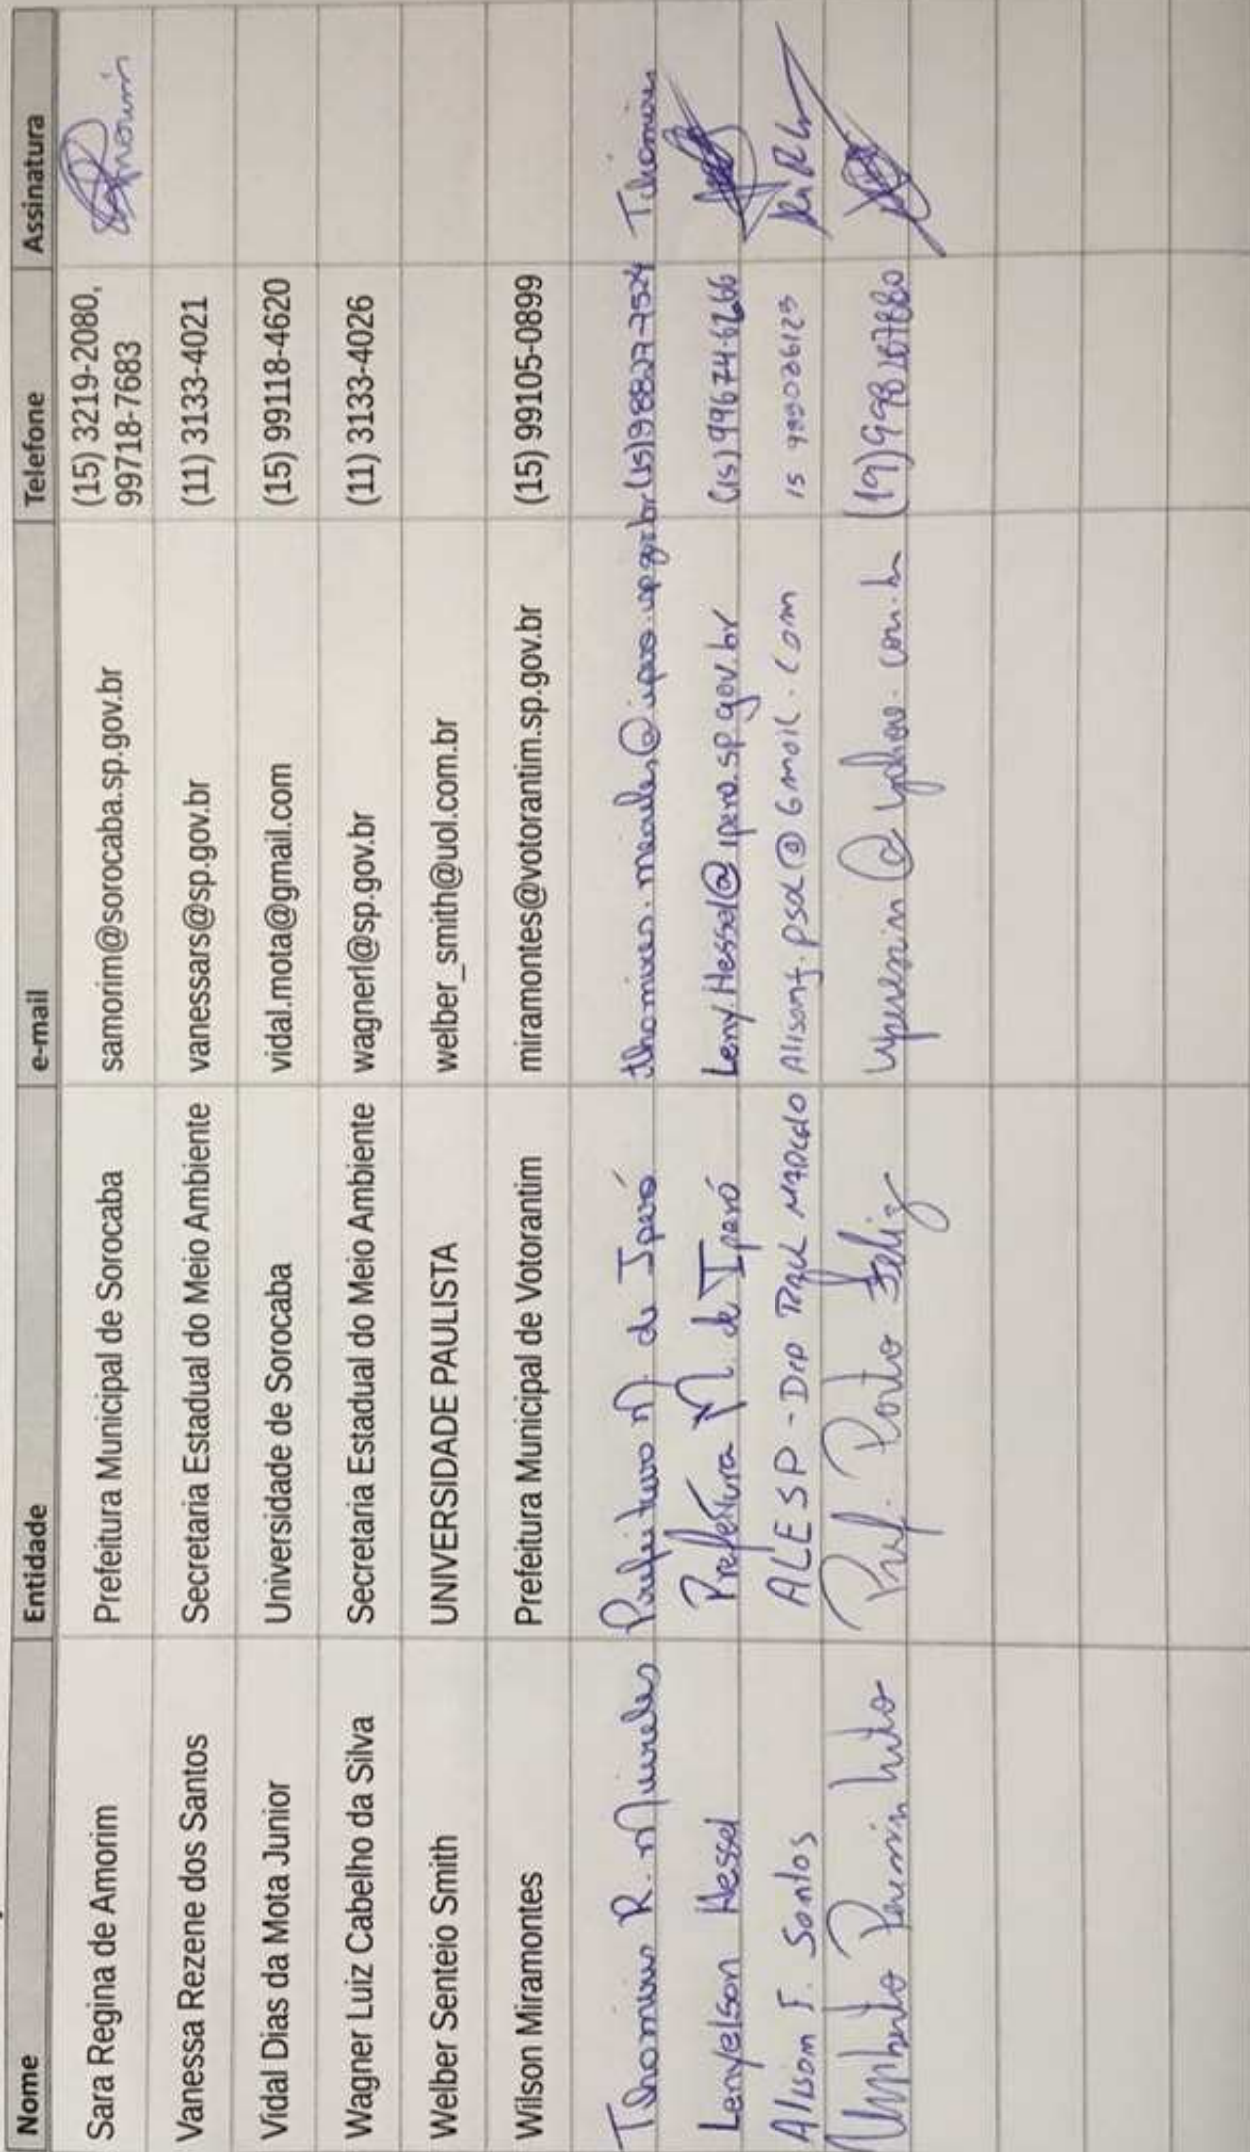 Nome Entidade e-mail Telefone Assinatura
Sara Regina de Amorim Prefeitura Municipal de Sorocaba samorim@sorocaba.sp.gov.br (15) 3219-2080,
99718-7683
Vanessa Rezene dos Santos Secretaria Estadual do Meio Ambiente vanessars@sp.gov.br (11) 3133-4021
Vidal Dias da Mota Junior Universidade de Sorocaba vidal.mota@gmail.com (15) 99118-4620
Wagner Luiz Cabelho da Silva Secretaria Estadual do Meio Ambiente wagnerl@sp.gov.br (11) 3133-4026
Welber Senteio Smith UNIVERSIDADE PAULISTA welber_smith@uol.com.br
Wilson Miramontes Prefeitura Municipal de Votorantim miramontes@votorantim.sp.gov.br (15) 99105-0899
R. Prefeitura M. de Iperó (15) 98827-7524
Lenyelson Hessel Prefeitura M. de Iperó Leny.Hessel@ipero.sp.gov.br (15) 99674-6266
Alison F. Santos ALESP - Dep Alisonf.psol@Gmail.com 15 999026123
Pref. Porto Feliz (19) 998167880